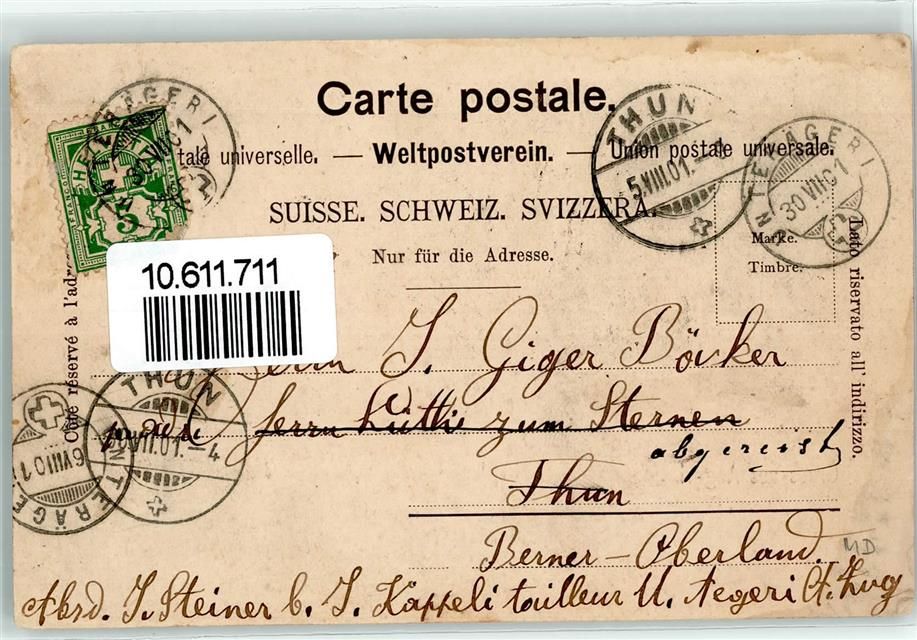 Carte postale.
tale universelle. — Weltpostverein. — Union postale universale.
SUISSE. SCHWEIZ. SVIZZERA.
Nur für die Adresse.
Marke.
Timbre.
Côté réservé à l'adr
Lato riservato all' indirizzo.
HELVETIA
5
10.611.711
UNTERÄGERI
30 VII 01
THUN
5.VIII.01.
UNTERÄGERI
30 VII 01
THUN
VII.01. 4
UNTERÄGE
6 VIII 01
Herrn J. Giger Bäcker
Herrn Lüthi zum Sternen
abgereist
Thun
Berner-Oberland.
MD
Absd. J. Steiner b. J. Kappeli tailleur U. Aegeri Ct. Zug